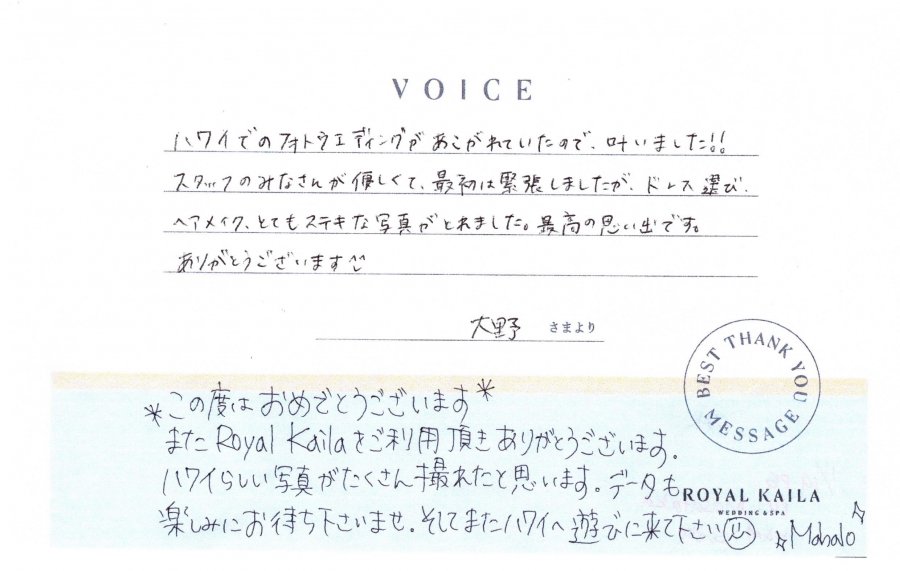 VOICE
ハワイでのフォトウエディングがあこがれていたので、叶いました!!
スタッフのみなさんが優しくて、最初は緊張しましたが、ドレス選び、
ヘアメイク、とてもステキな写真がとれました。最高の思い出です。
ありがとうございます
大野 さまより
BEST THANK YOU MESSAGE
*この度はおめでとうございます*
またRoyal Kailaをご利用頂きありがとうございます。
ハワイらしい写真がたくさん撮れたと思います。データも
ROYAL KAILA
WEDDING & SPA
楽しみにお待ち下さいませ。そしてまたハワイへ遊びに来て下さい
Mahalo